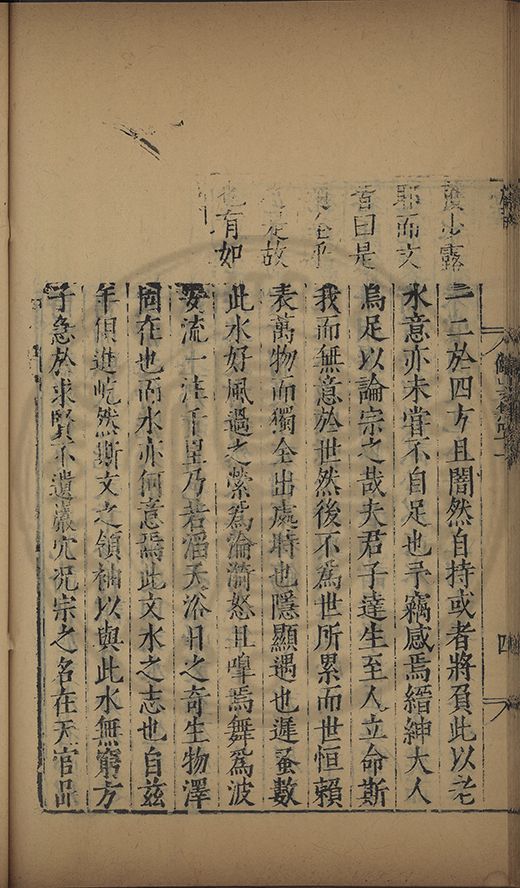 二於四方且闇然自持或者將負此以老
水意亦未嘗不自足也予竊感焉縉紳大人
烏足以論宗之哉夫君子達生至人立命斯
我而無意於世然後不為世所累而世恒賴
表萬物而獨全出處時也隱顯遇也遲蚤數
此水好風過之縈為淪漪怒且嘷焉舞為波
安流一注千里乃若滔天浴日之奇生物澤
固在也而水亦何意焉此文水之志也自兹
年但進屹然斯文之領袖以與此水無窮方
子急於求賢不遺巖穴况宗之名在天官品
少露
耶而文
昔曰是
乎
是故
也有如
四